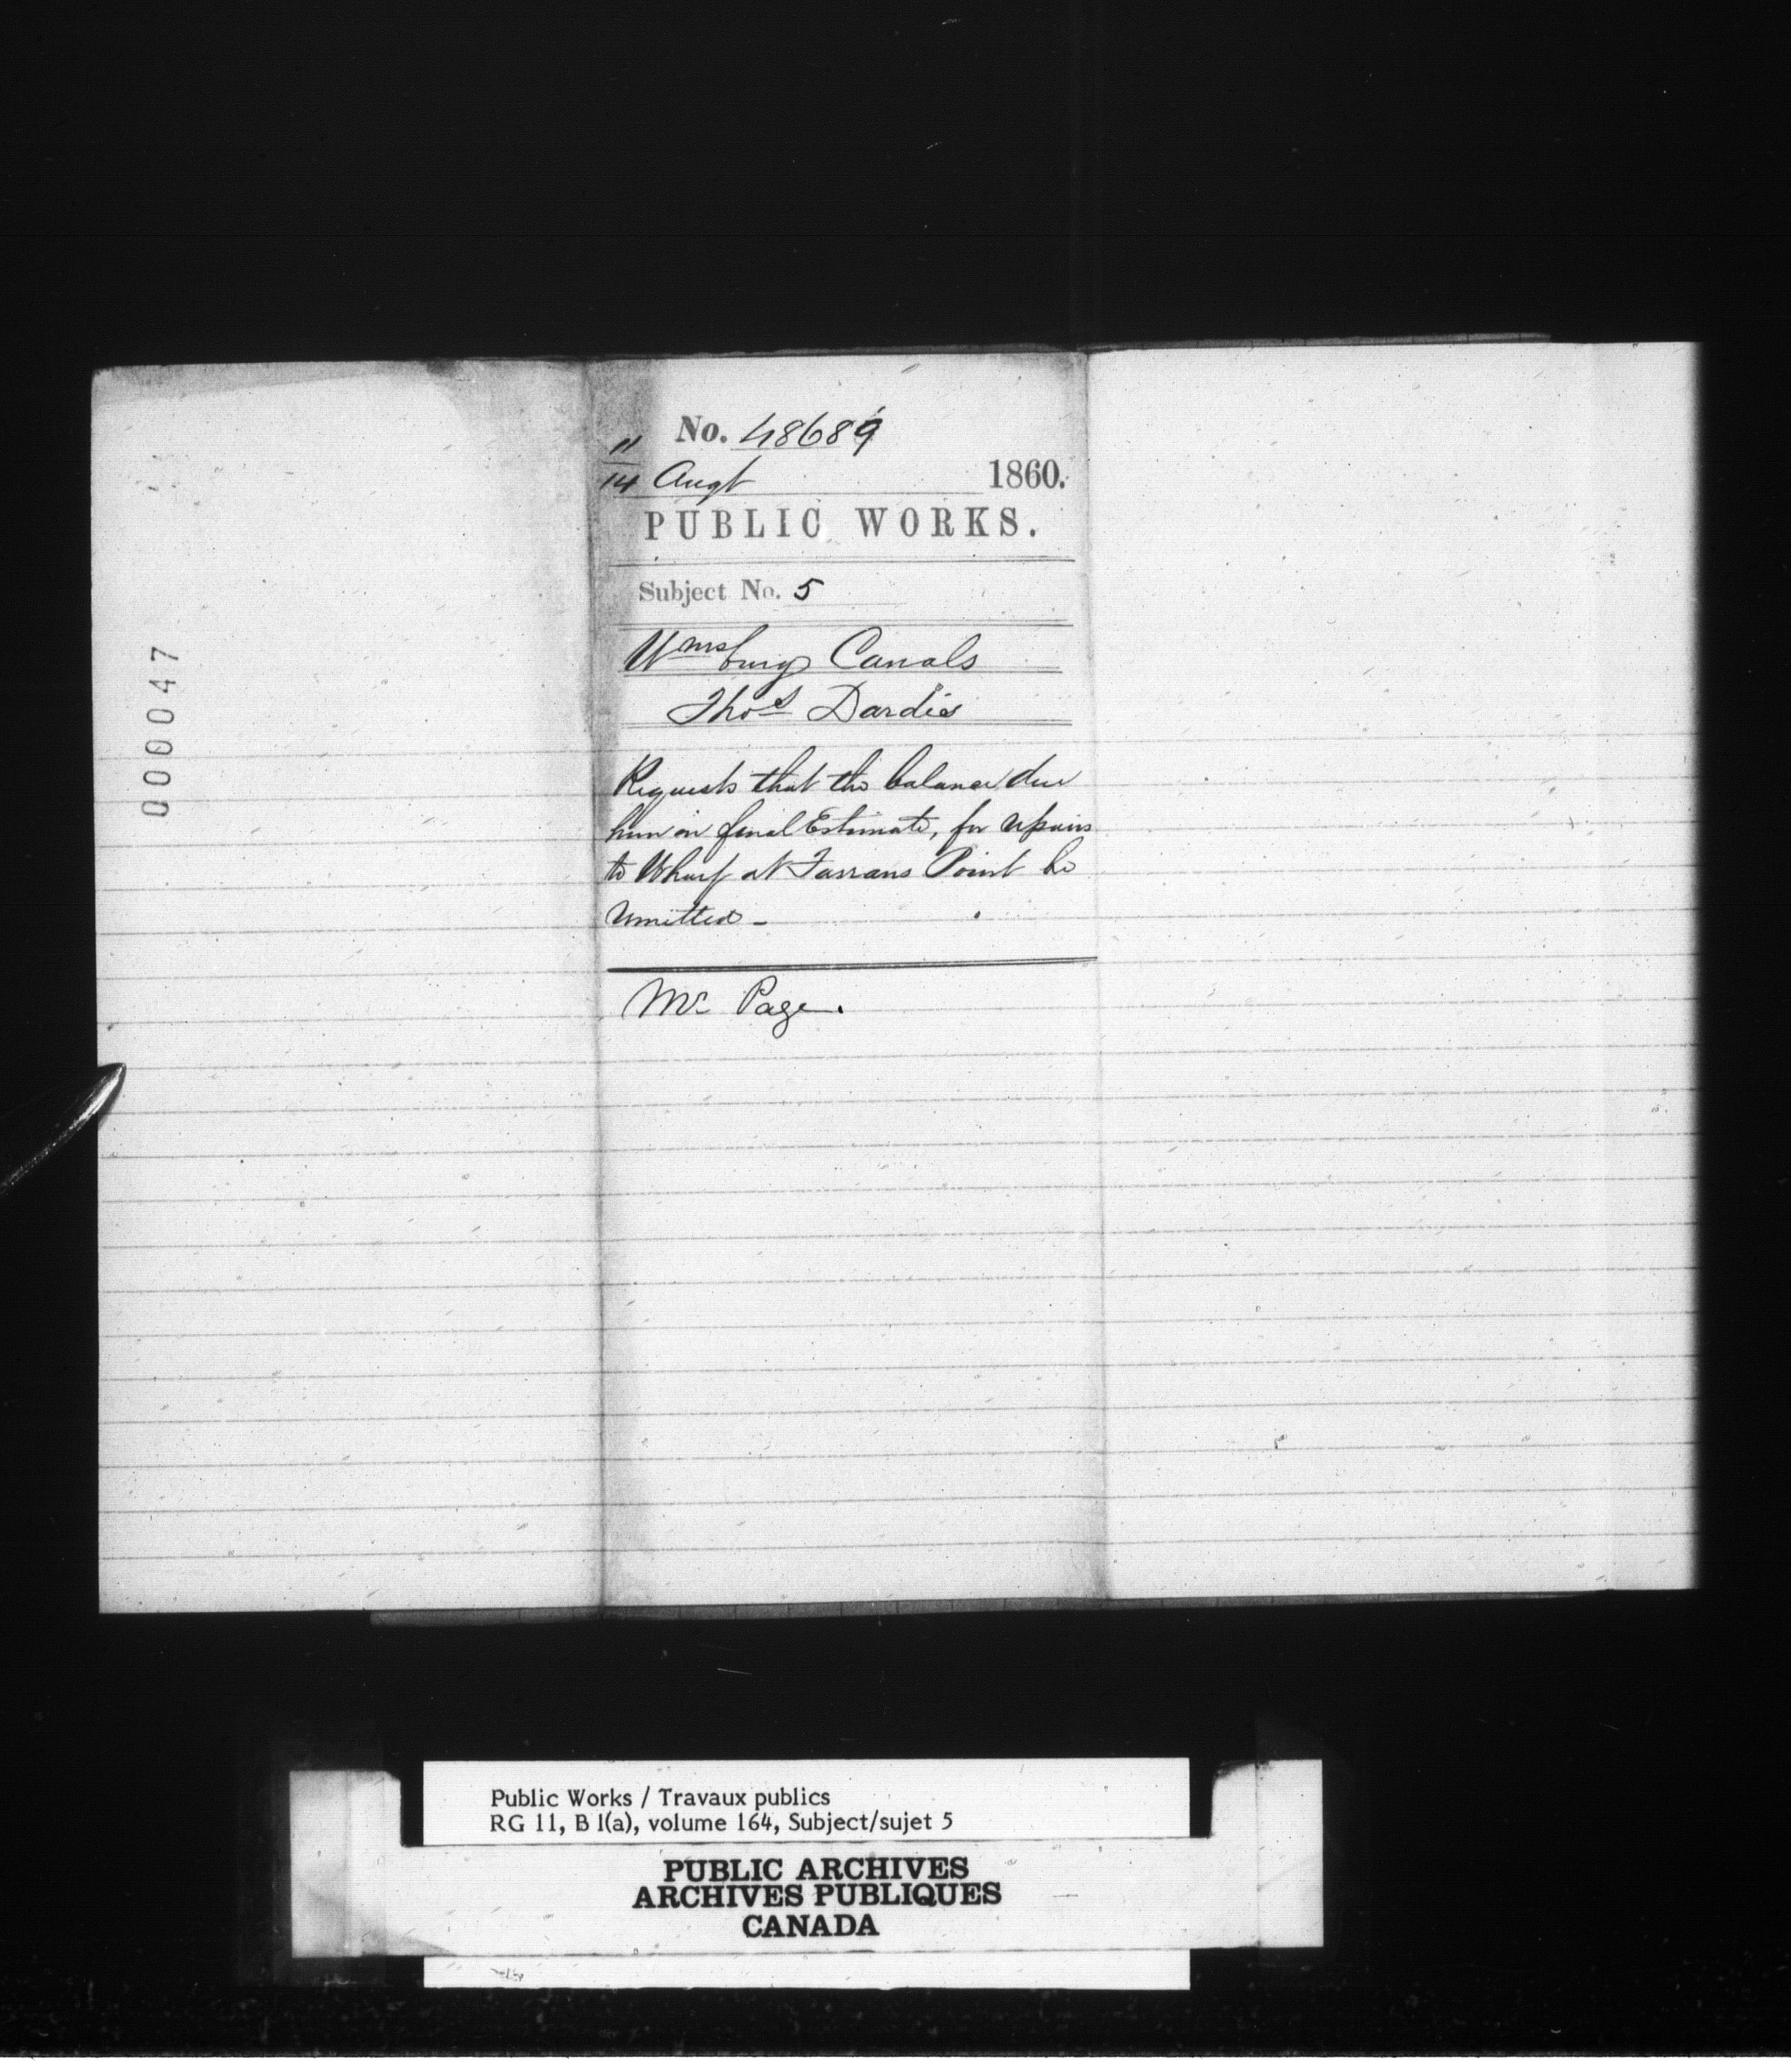 No. 48689
11
14 Augt 1860.
PUBLIC WORKS.
Subject No. 5
Wmsburg Canals
Thos Dardis
Requests that the balance due
him on final Estimate, for repairs
to Wharf at Farrans Point be
remitted -
Mr Page.
000047
Public Works / Travaux publics
RG 11, B 1(a), volume 164, Subject/sujet 5
PUBLIC ARCHIVES
ARCHIVES PUBLIQUES
CANADA